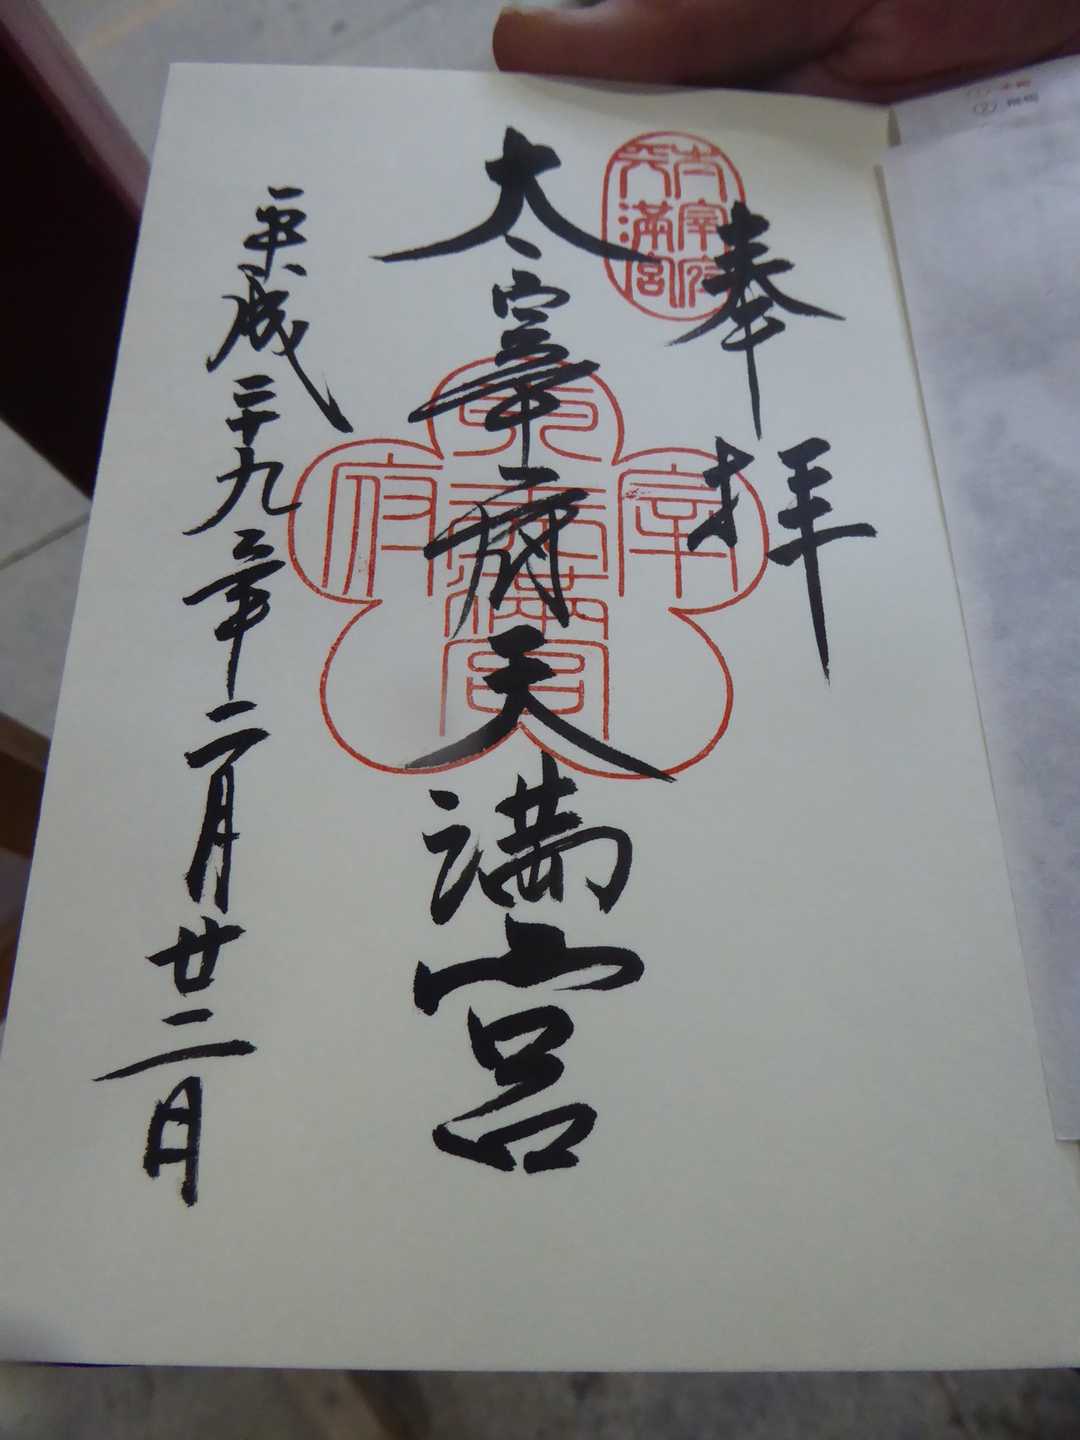 奉拝
太宰府
天満宮
太宰府天満宮
平成二十九年二月廿二日